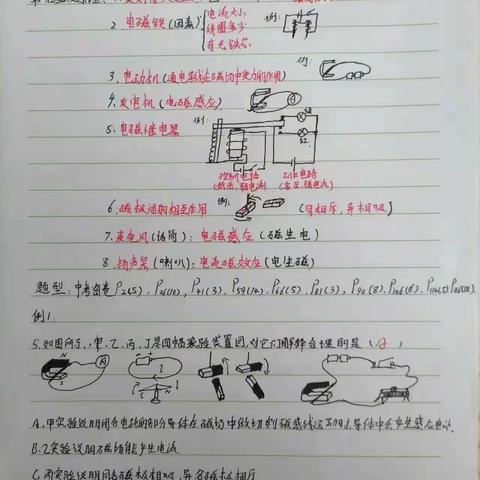 2. 电磁铁(因素){电流大小 线圈多少 有无铁芯 例:
3. 电动机(通电导线在磁场中受力的作用) 例:
4. 发电机(电磁感应)
5. 电磁继电器 例: 绿 红
控制电路 工作电路
(低压、弱电流) (高压、强电流)
6. 磁极间的相互作用 例: (同相斥,异相吸)
7. 麦克风(话筒):电磁感应(磁生电)
8. 扬声器(喇叭):电流磁效应(电生磁)
题型:中考 P2(5)、P26(10)、P41(3)、P59(14)、P66(5)、P81(3)、P90(8)、P106(8)、
例1:
5. 如图所示,甲、乙、丙、丁是四幅实验装置图,对它们解释合理的是(A)
A. 甲实验说明闭合电路的部分导体在磁场中做切割磁感线运动时导体中会产生感应电流
B. 乙实验说明磁场能产生电流
C. 丙实验说明同名磁极相吸,异名磁极相斥